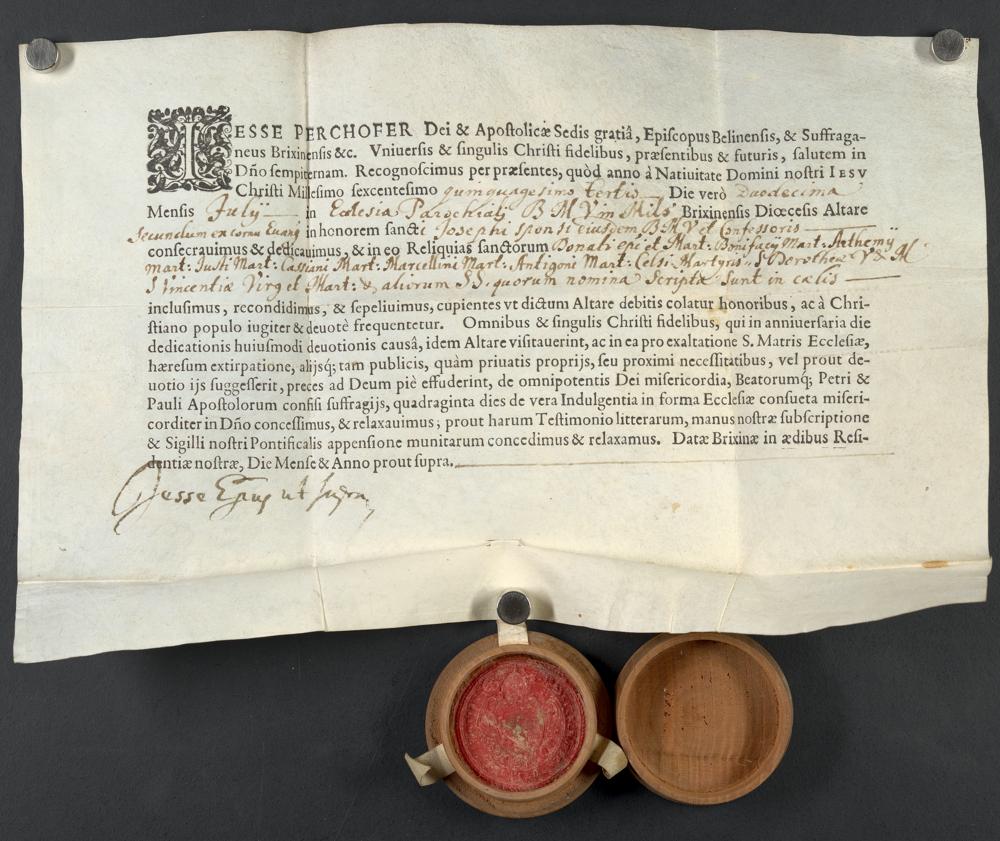 IESSE PERCHOFER Dei & Apostolicæ Sedis gratiâ, Episcopus Belinensis, & Suffraga-
neus Brixinensis &c. Vniuersis & singulis Christi fidelibus, præsentibus & futuris, salutem in
Dño sempiternam. Recognoscimus per præsentes, quòd anno à Natiuitate Domini nostri IESV
Christi Millesimo sexcentesimo quinquagesimo tertio Die verò Duodecima
Mensis Julÿ in Ecclesia Parochiali B M V in Mils Brixinensis Diœcesis Altare
Secundum ex cornu Euang in honorem sancti Josephi sponsi eiusdem B M V et Confessoris
consecrauimus & dedicauimus, & in eo Reliquias sanctorum Donati epi et Mart: Bonifacÿ Mart: Arthemÿ
Mart: Justi Mart: Cassiani Mart: Marcellini Mart: Antigoni Mart: Celsi Martyris, S Dorotheæ V & M
S Vincentiæ Virg et Mart: & aliorum SS. quorum nomina Scripta Sunt in cælis
inclusimus, recondidimus, & sepeliuimus, cupientes vt dictum Altare debitis colatur honoribus, ac à Chri-
stiano populo iugiter & deuotè frequentetur. Omnibus & singulis Christi fidelibus, qui in anniuersaria die
dedicationis huiusmodi deuotionis causâ, idem Altare visitauerint, ac in ea pro exaltatione S. Matris Ecclesiæ,
hæresum extirpatione, alijsq; tam publicis, quàm priuatis proprijs, seu proximi necessitatibus, vel prout de-
uotio ijs suggesserit, preces ad Deum piè effuderint, de omnipotentis Dei misericordia, Beatorumq; Petri &
Pauli Apostolorum confisi suffragijs, quadraginta dies de vera Indulgentia in forma Ecclesiæ consueta miseri-
corditer in Dño concessimus, & relaxauimus; prout harum Testimonio litterarum, manus nostræ subscriptione
& Sigilli nostri Pontificalis appensione munitarum concedimus & relaxamus. Datæ Brixinæ in ædibus Resi-
dentiæ nostræ, Die Mense & Anno prout supra.
Jesse Epus ut supra